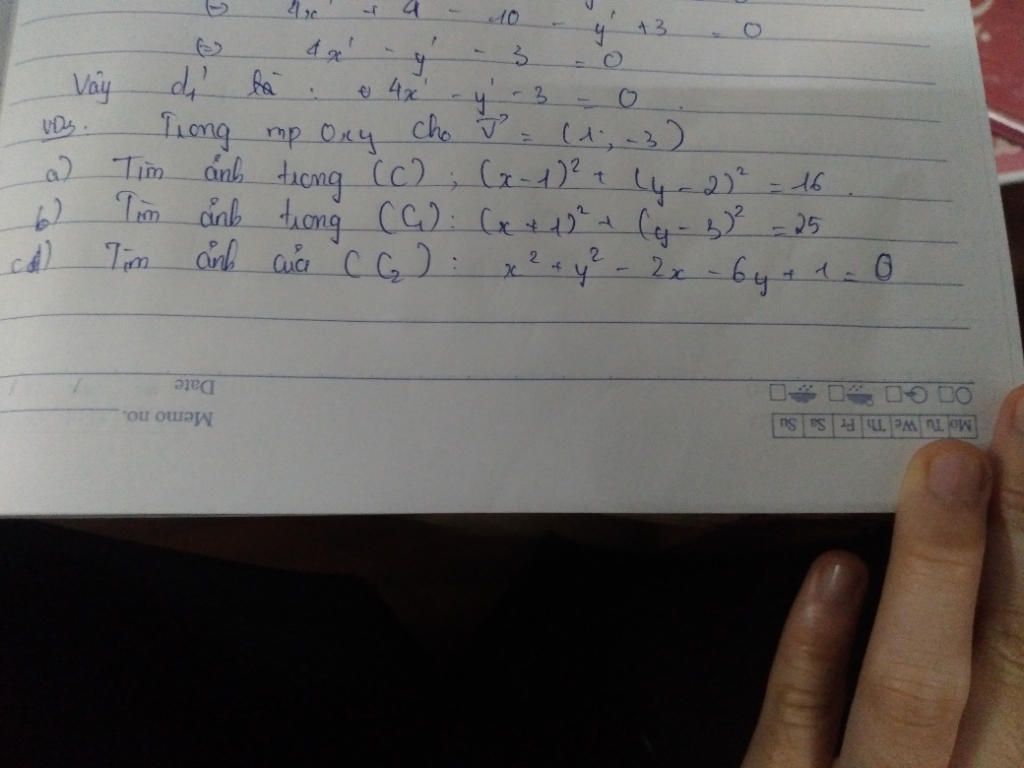 (=) 4x' + 4 - 10 - y' + 3 = 0
(=) 4x' - y' - 3 = 0
Vậy d₁' là : 4x' - y' - 3 = 0.
VD3. Trong mp Oxy cho V⃗ = (1; -3)
a) Tìm ảnh trong (C) : (x-1)² + (y-2)² = 16.
b) Tìm ảnh trong (C₁) : (x+1)² + (y-3)² = 25
c) Tìm ảnh của (C₂) : x² + y² - 2x - 6y + 1 = 0
Date
Memo no.
Mo Tu We Th Fr Sa Su